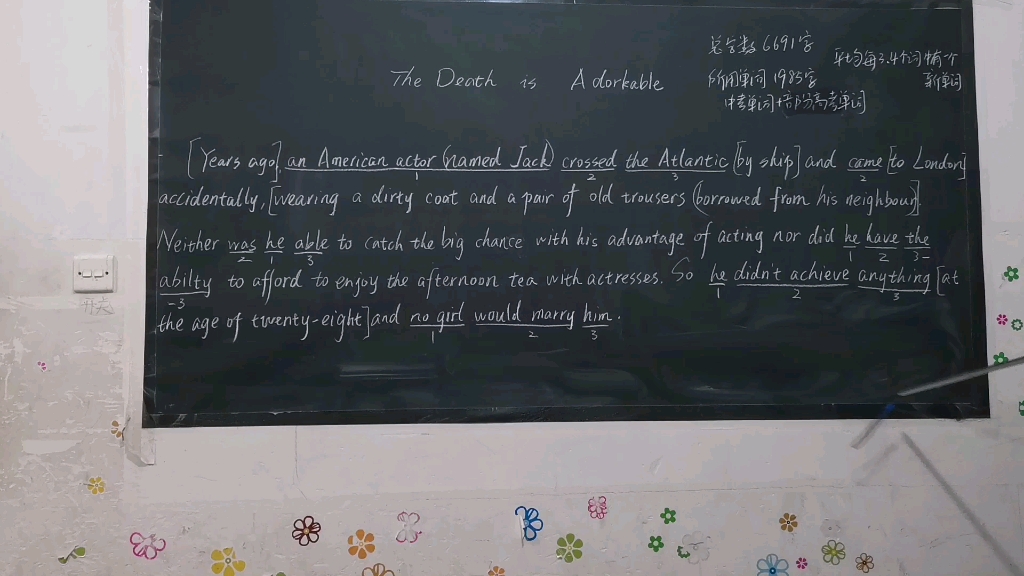 总字数 6691字
平均每3.4个词 有一个
新单词
所用单词 1985字
中考单词+部分高考单词
The Death is Adorkable
[Years ago], an American actor (named Jack) crossed the Atlantic [by ship] and came [to London]
1 2 3 2
accidentally, [wearing a dirty coat and a pair of old trousers (borrowed from his neighbour)].
Neither was he able to catch the big chance with his advantage of acting nor did he have the
2 1 3 1 2 3-
abilty to afford to enjoy the afternoon tea with actresses. So he didn't achieve anything [at
-3 1 2 3
the age of twenty-eight] and no girl would marry him.
1 2 3